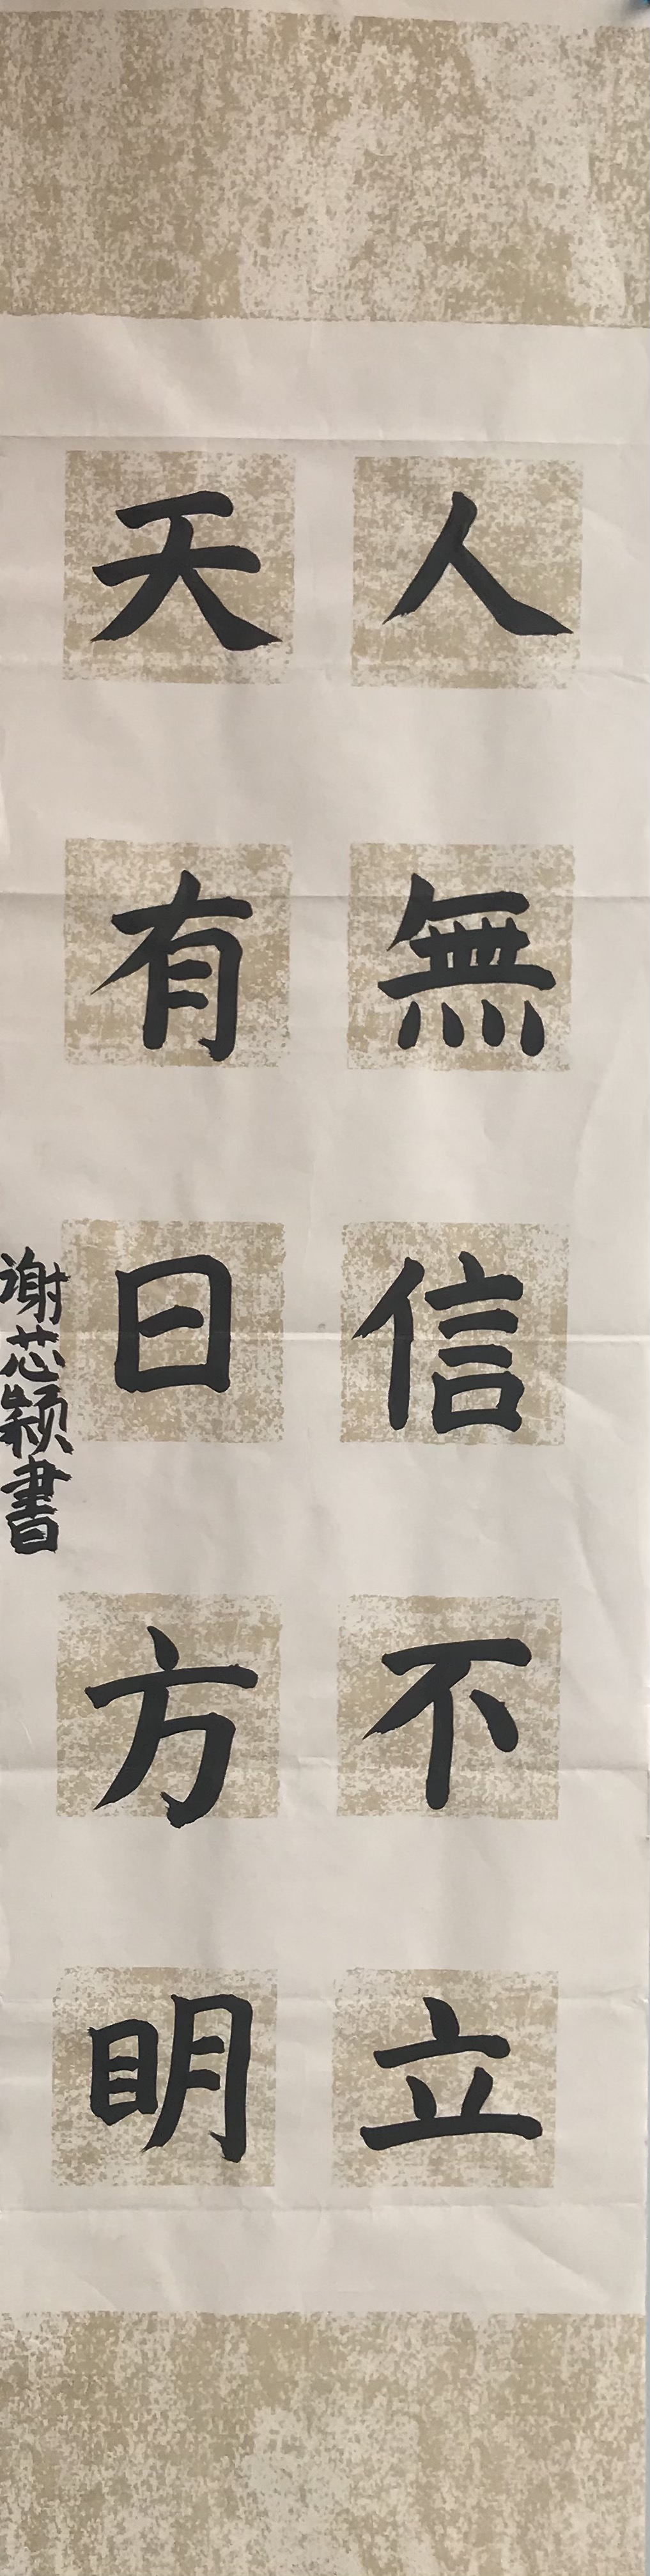 人無信不立
天有日方明
谢芯颖書